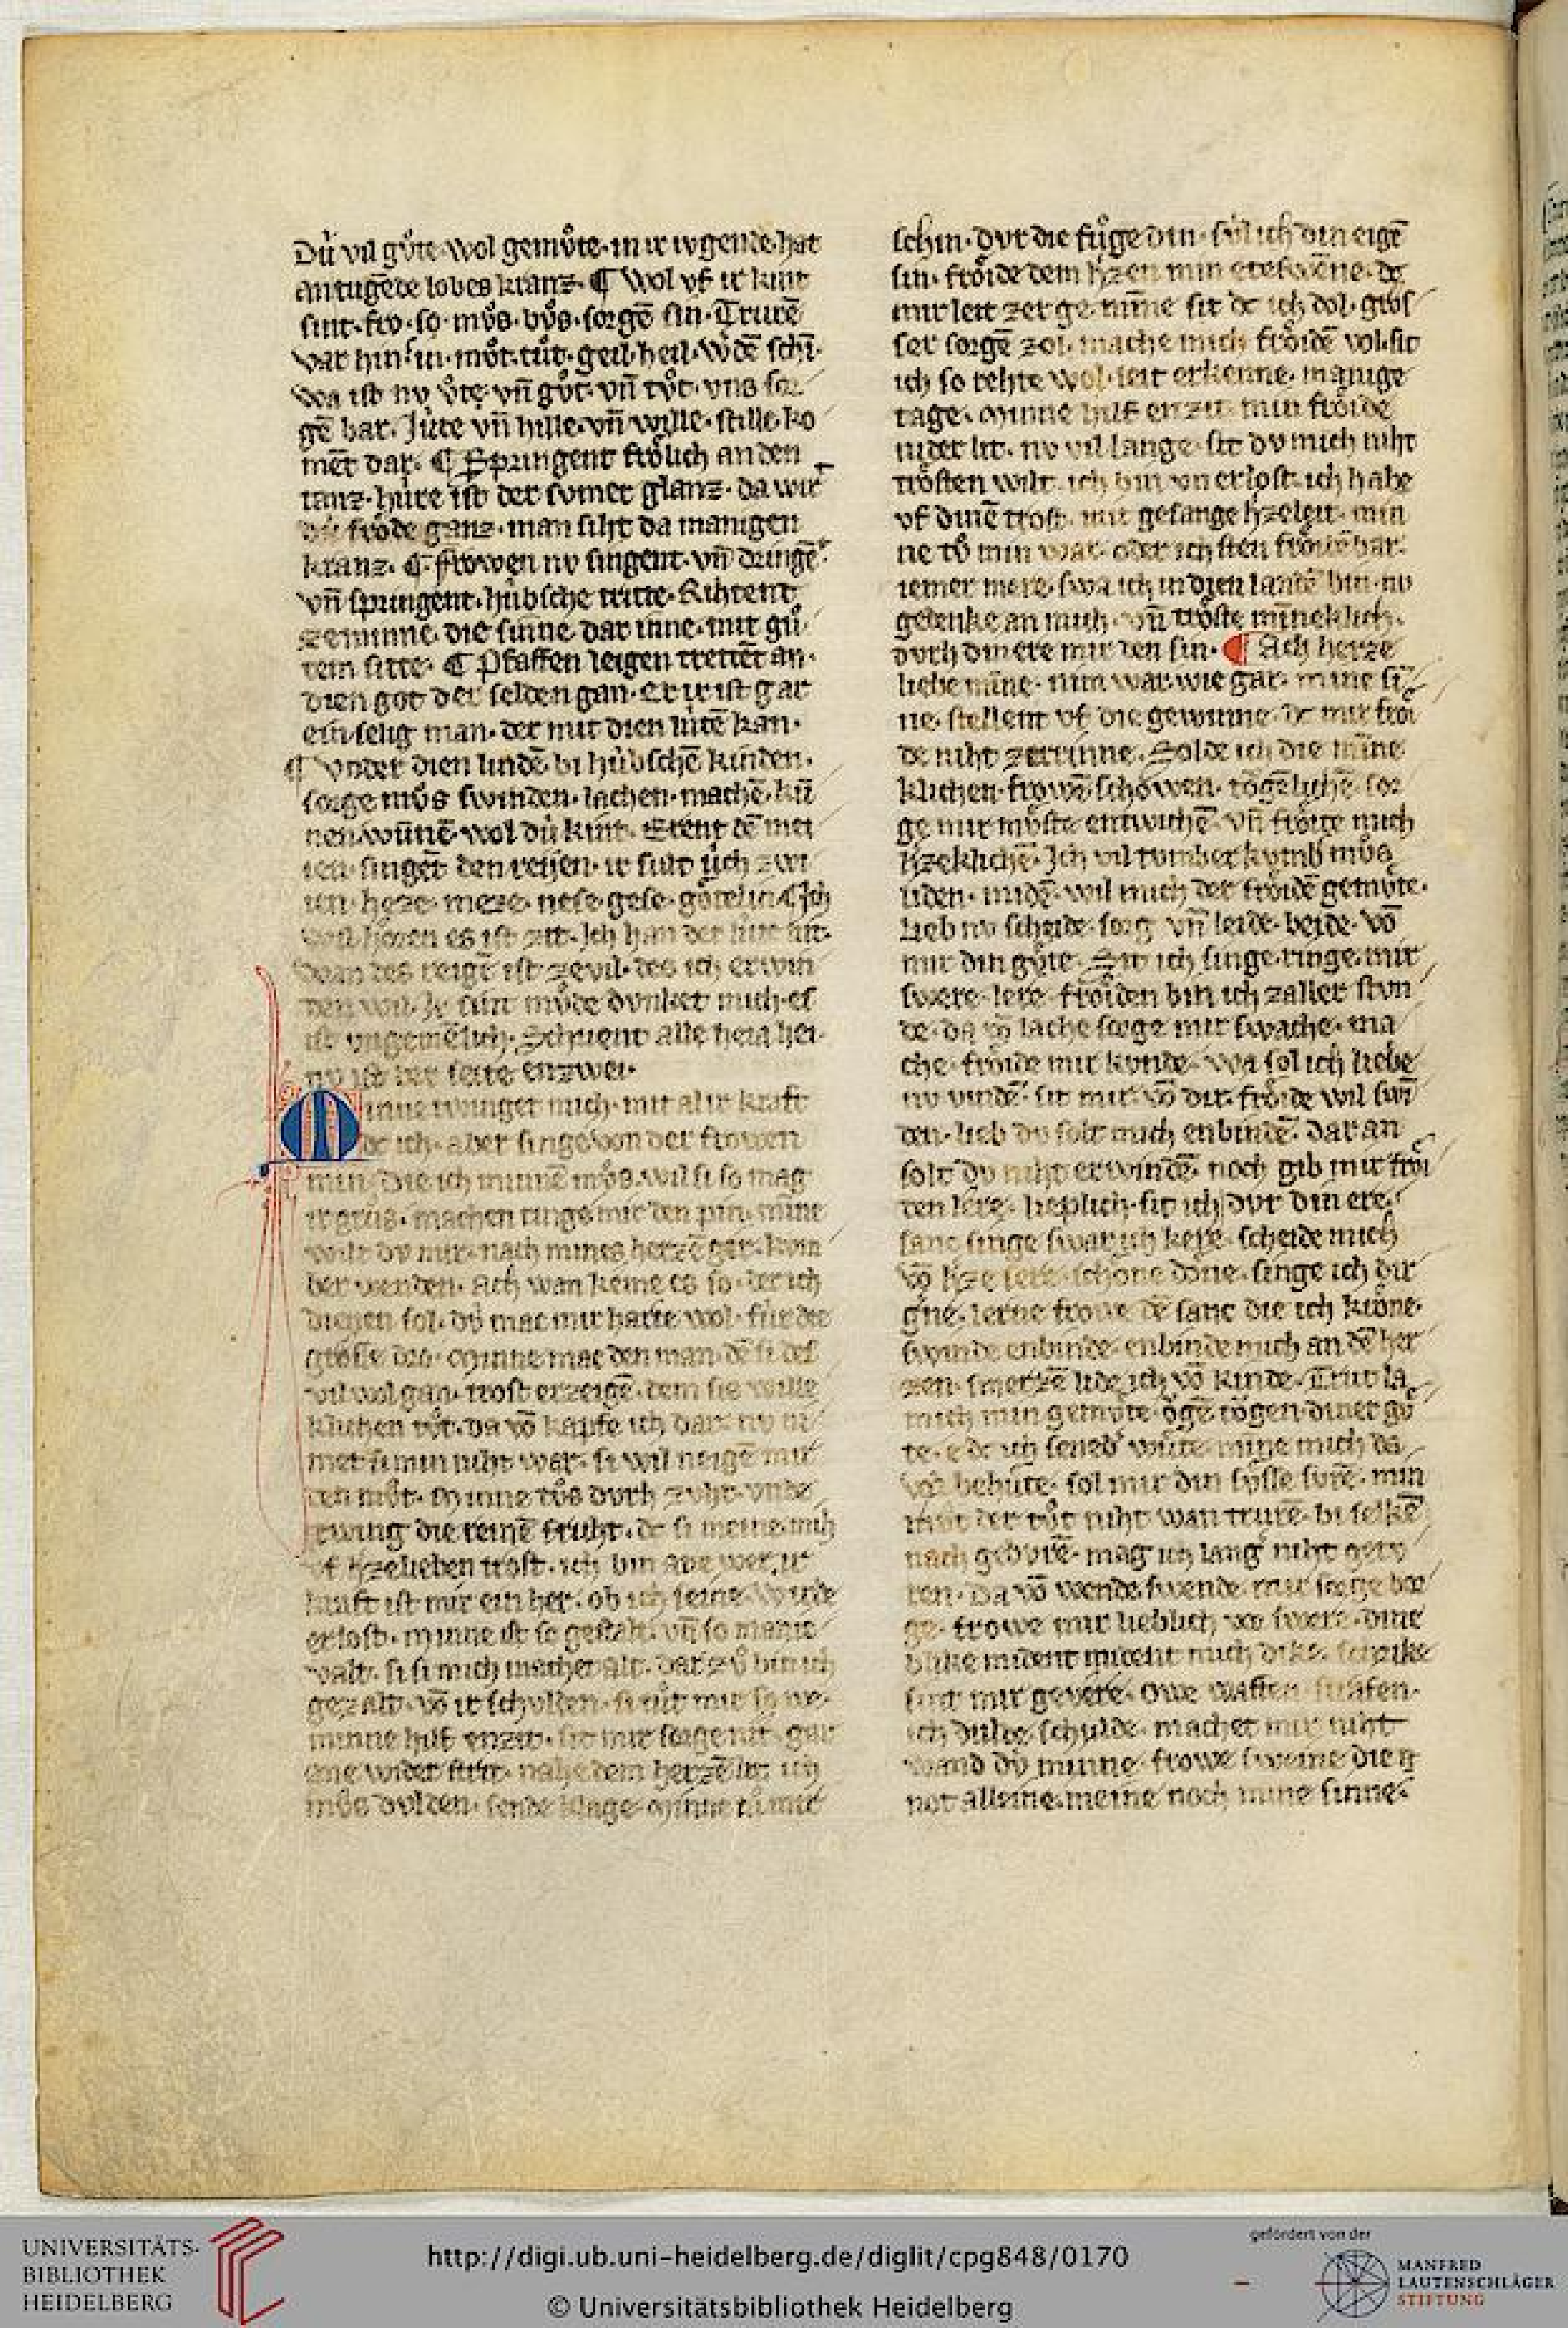 Dú vil gůte wol gemůte mir tvgende hat
an tugēde lobes kranz. ¶ Wol vf ir kint
sint fro so můs bůs sorgē sin Trurē
war hin sin můt tůt geil heil wdē schī
wa ist nv ůte vn̄ gůt vn̄ tůt vns sor
gē bar. Jůte vn̄ hille vn̄ wille stille ko
mēt dar. ¶ Springent frölich an den
tanz húre ist der svmer glanz da wirt
dú fröde ganz man siht da manigen
kranz. ¶ frowen nv singent vn̄ dringēt
vn̄ springent húbsche tritte Rihtent
ze minne die sinne dar inne mit gů
tem sitte. ¶ Pfaffen leigen trettēt an
dien got der selden gan er ir ist gar
ein selig man der mit dien lúte kan
¶ vnder dien lindē bi húbschē kinden
sorge můs swinden lachen machē kú
nen wūnē wol dú kint. Erent dē mei
ien singēt den reijen ir sult úch zwei
ien heze meze nese gese götelin ¶ Jch
wil hören es ist zit Jch han der lúte nit
wan des reigē ist ze vil des ich erwin
den wil Je sint můde dvnket mich es
ist vngemēlich Schrient alle heia hei
nv ist der seite enzwei
Minne twinget mich mit al ir kraft
dc ich aber singe von der frowen
min Die ich minnē můs wil si so mag
ir grůs machen ringe mir den pin mīne
wilt dv mir nach mines herzē ger kvm
ber wenden Ach wan keme es so der ich
dienen sol dú mac mir harte wol für die
Minne mac den man dē si des
vil wol gan trost erzeigē dem sie wille
klichen tůt da vō kapfe ich dar nv ni
met si min niht war si wil neigē mir
den můt Minne tůs dvrh zvht vnde
twing die reinē fruht dc si meine mih
vf hzelieben trost ich bin ane wer ir
kraft ist mir ein her ob ich ieine wurde
erlost minne ist so gestalt vn̄ so manic
valt si si mich machet alt dar zů bin ich
gezalt vō ir schvlden si tůt mir so we
minne hilf enzit sit mir sorge nit gar
ane wider strit nahe dem herzē lit ich
můs dvlden sende klage Minne tů mir
schin dvr die fůge din svl ich din eigē
sin fröide dem hzen min
mir leit zerge mīne sit dc ich dol gros
ser sorgē zol mache mich fröidē vol sit
ich so rehte wol leit erkenne manige
tage Minne hilf enzit min fröide
nider lit nv vil lange sit dv mich niht
trösten wilt ich bin vn erlost ich habe
vf dinē trost mit gesange hzeleit min
ne tů min war oder ich sten fröidē bar
iemer mere swa ich in dien landē bin nv
gedenke an mich vn̄ tröste mīneklich
dvrh din ere mir den sin ¶ Ach herze
liebe mīne nim war wie gar mine si
ne stellent vf die gewinne dc mir fröi
de niht zerrinne Solde ich die mīne
klichen frowē schöwen tögēlichē sor
ge mir můste entwichē vn̄ fröite mich
hzeklichē Jch vil tvmber kvmb můs
liden midē wil mich der fröidē gemůte
Lieb nv scheide sorg vn̄ leide beide vō
mir din gůte Sit ich singe ringe mir
swere lere fröiden bin ich zaller stvn
de da vō lache sorge mir swache ma
che fröide mir kvnde wa sol ich liebe
nv vindē sit mir vō dir fröide wil swī
den lieb dv solt mich enbindē dar an
solt dv niht erwindē noch gib mir fröi
den lere lieplich sit ich dvr din ere
sanc singe swar ich kere scheide mich
vō hze sere schöne döne singe ich dir
gne lerne frowe dē sanc die ich kröne
swinde enbinde enbinde mich an dē her
zen smerzē lide ich vō kinde Trut la
mich min gemůte ögē tögen diner gů
te e dc ich wůte mine mich da
vor behůte sol mir din sůsse svrē min
můt der tůt niht wan trurē bi selkē
nach gebvrē mag ich lang niht getv
ren Da vō wende swende mir sorge bor
ge frowe mir lieblich vō swere dine
blike mident mident mich dike schrike
sint mir gevere Owe waffen strafen
ich dulde schulde machet mir niht
wand dú minne frowe sweine die
not alleine meine noch mine sinne
UNIVERSITÄTS-
BIBLIOTHEK
HEIDELBERG
http://digi.ub.uni-heidelberg.de/diglit/cpg848/0170
© Universitätsbibliothek Heidelberg
gefördert von der
MANFRED
LAUTENSCHLÄGER
STIFTUNG